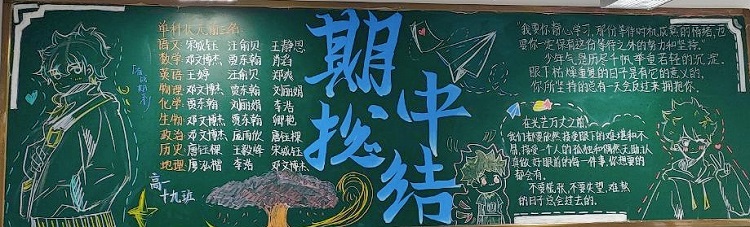 单科状元榜
语文 宋威钰 汪俞贝 王静思
数学 邓文博杰 贾东翰 肖淯
英语 王婷 汪俞贝 郑爽
物理 邓文博杰 贾东翰 刘丽娟
化学 贾东翰 刘丽娟 李浩
生物 邓文博杰 贾东翰 卿艳
政治 邓文博杰 唐钰棵
历史 唐钰棵 王毅峰 宋威钰
地理 廖泓楷 李浩 邓文博杰
高一十九班
期中
总结
"我要你静心学习,那份等待时机成熟的情绪,也
要你一定保有这份等待之外的努力和坚持。
少年气是历尽千帆举重若轻的沉淀,
眼下枯燥重复的日子是有它的意义的,
你所坚持的总有一天会反过来拥抱你。
在光芒万丈之前,
我们都要欣然接受眼下的难堪和不
易,接受一个人的孤独和偶尔无助,认
真做好眼前的每一件事,你想要的
都会有。
不要慌张,不要失望,难熬
的日子总会过去的。